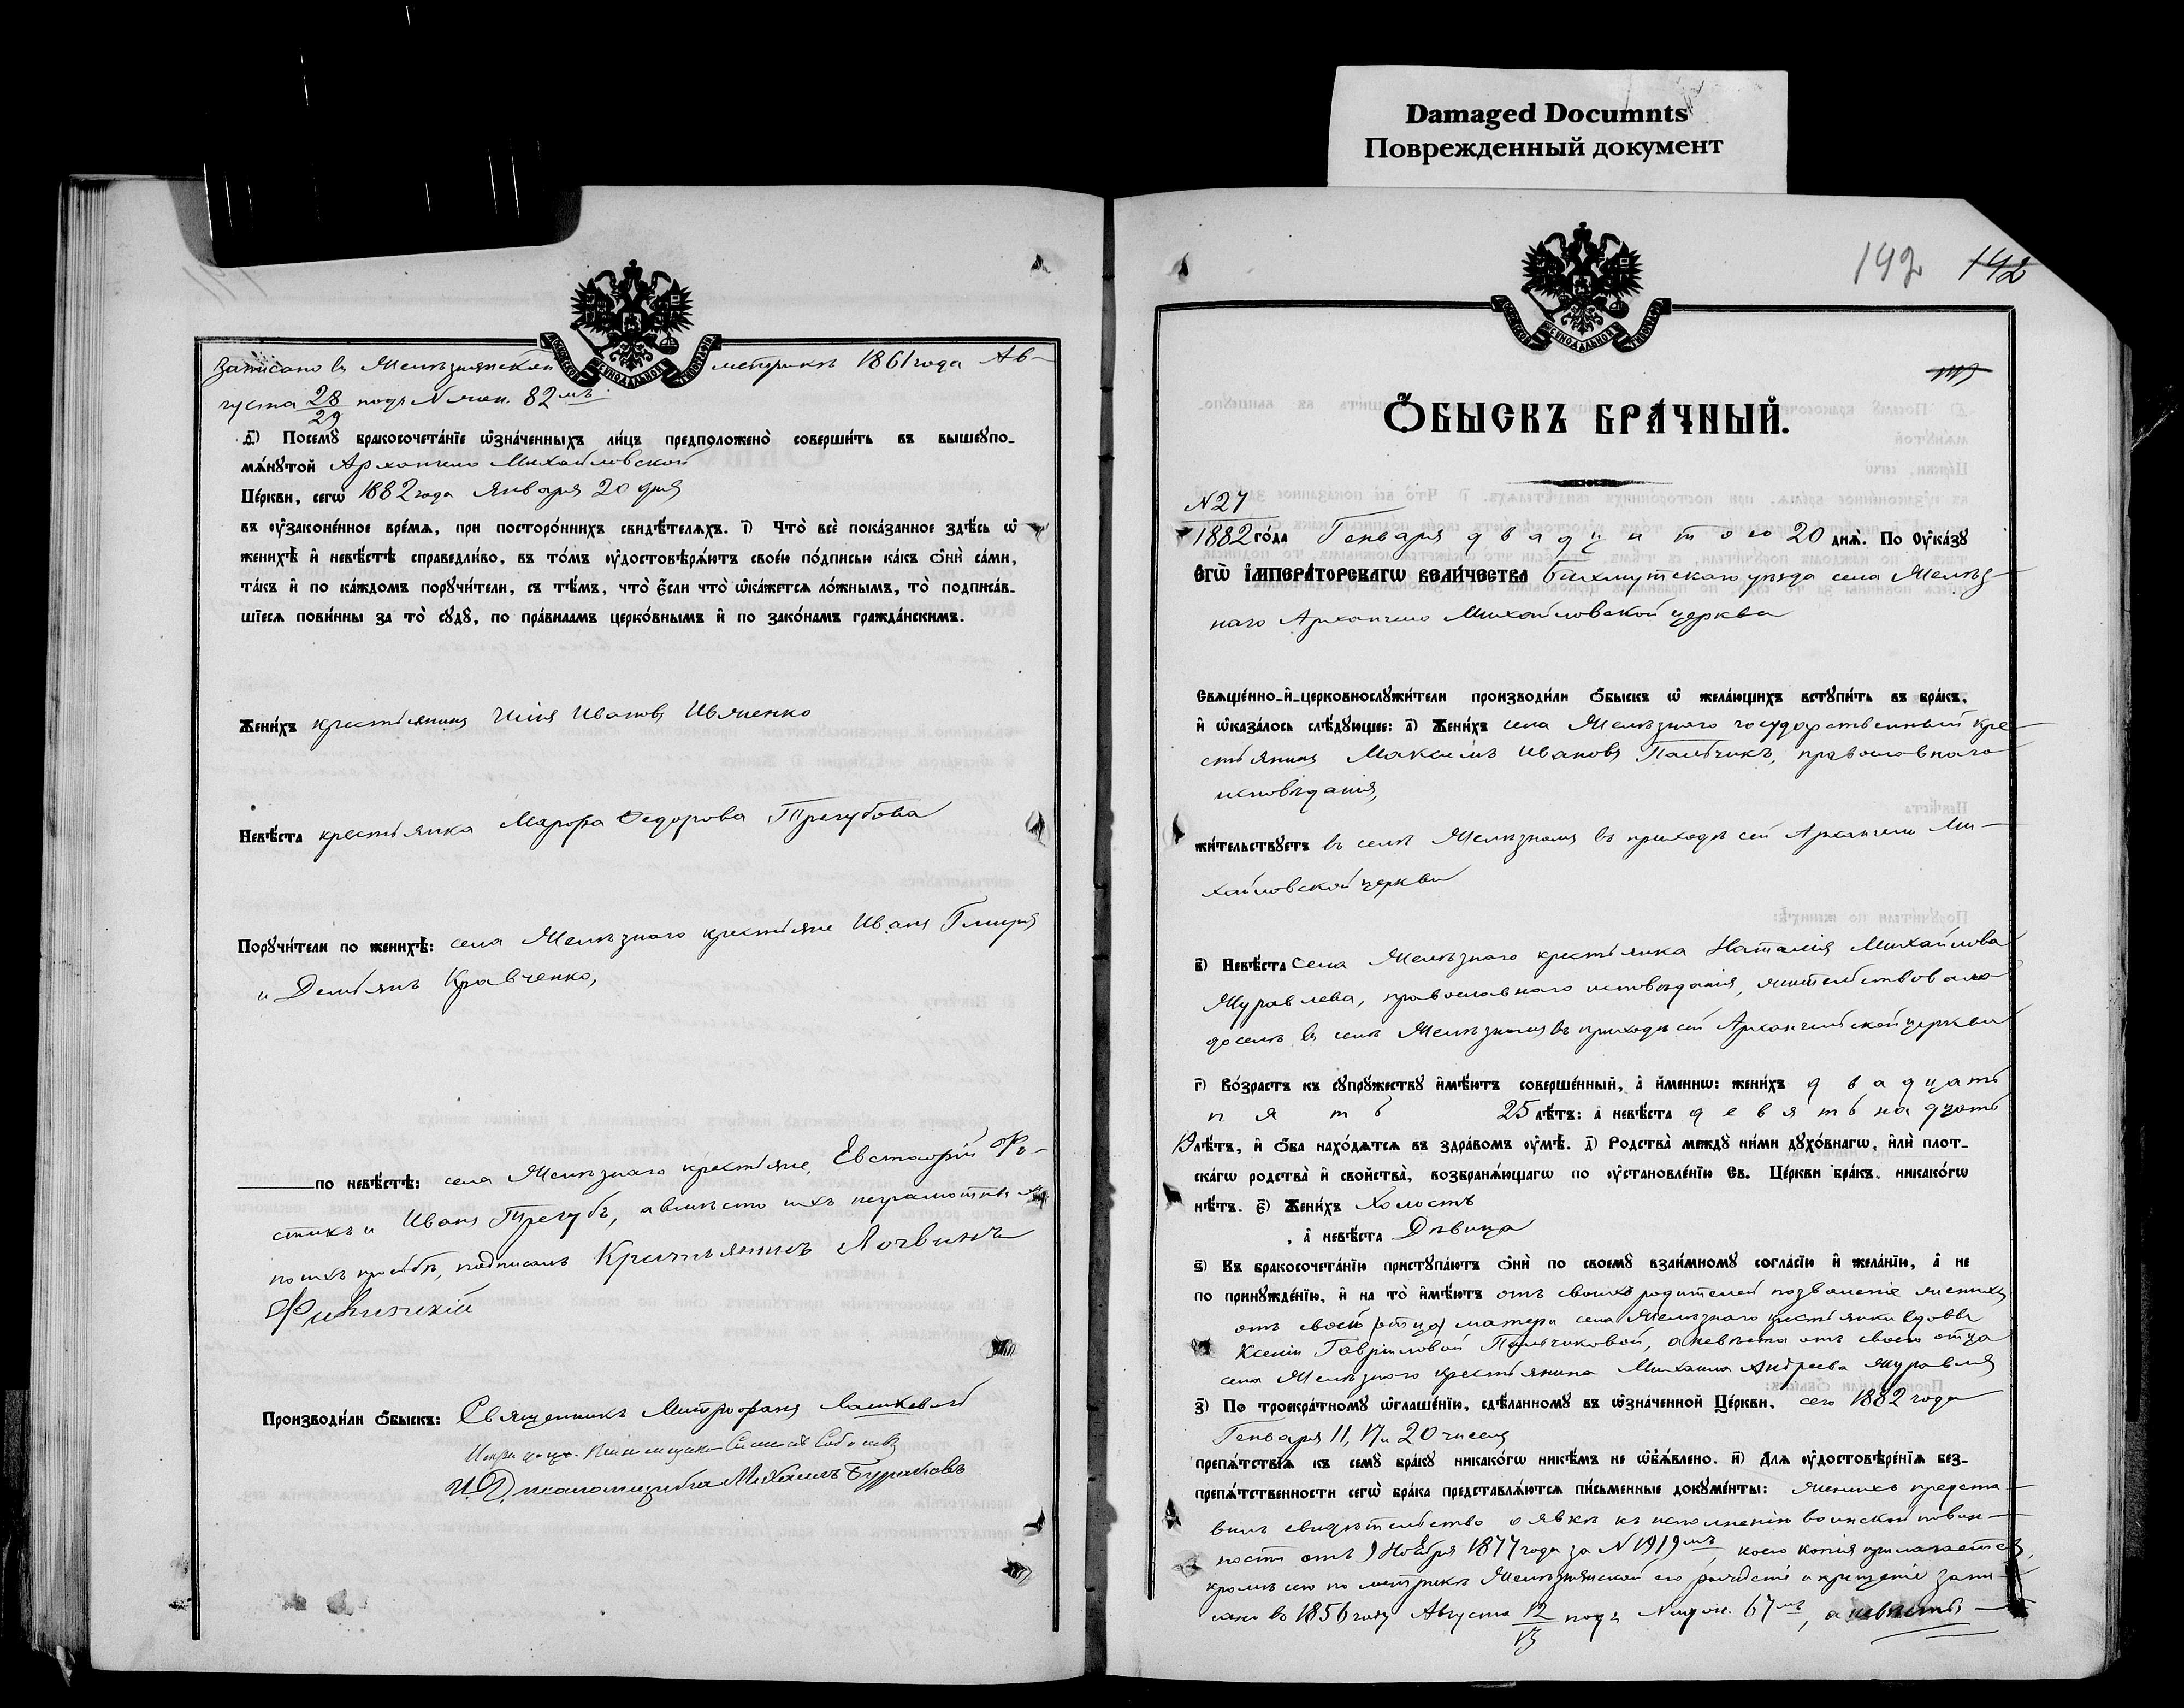 Damaged Documnts
Поврежденный документ
Записано въ Желѣзнянской метрикѣ 1861 года Ав-
густа 28/29 подъ № жен. 82мъ.
д҃і) Посемꙋ бракосочетанїе ѡзначенныхъ лицъ предположено совершить въ вышеꙋпо-
мѧнꙋтой Архангело Михайловской
Церкви, сегѡ 1882 года Января 20 дня
въ ᲂузаконенное времѧ, при постороннихъ свидѣтелѧхъ. і҃) Что все показанное здѣсь ѡ
женихѣ и невѣстѣ справедливо, въ томъ ᲂудостовѣрѧютъ своею подписью какъ ѻни сами,
такъ и по каждомъ порꙋчители, съ тѣмъ, что если что ѡкажетсѧ ложнымъ, то подписав-
шїесѧ повинны за то сꙋдꙋ, по правиламъ церковнымъ и по законамъ гражданскимъ.
Женихъ крестьянинъ Илія Ивановъ Ивченко
Невѣста крестьянка Марфа Ѳедорова Трегубова
Порꙋчители по женихѣ: села Желѣзнаго крестьяне Иванъ
и Демьянъ Кравченко,
по невѣстѣ: села Желѣзнаго крестьяне, Евстафій
и Иванъ Трегубъ, а вмѣсто ихъ неграмотныхъ
по ихъ прозьбѣ, подписалъ Крестьянинъ
Производили ѻбыскъ: Священникъ Митрофанъ Лашкевичъ
И. Д. псаломщика Михаилъ Бурсаковъ
192 192
МОСКОВСКОЙ СѴНОДАЛЬНОЙ ТИПОГРАФІИ
ѺБЫСКЪ БРАЧНЫЙ.
№ 27
1882 года Генваря двадцатого 20 днѧ. По ᲂуказꙋ
ЕГѠ ІМПЕРАТОРСКАГѠ ВЕЛИЧЕСТВА Бахмутскаго уѣзда села Желѣз-
наго Архангело Михайловской церкви
Свѧщенно-и-церковнослꙋжители производили ѻбыскъ ѡ желающихъ встꙋпить въ бракъ,
и ѡказалось слѣдꙋющее: а҃) Женихъ села Желѣзнаго государственный кре-
стьянинъ Максимъ Ивановъ Пальчикъ, православнаго
исповѣданія,
жительствꙋетъ въ селѣ Желѣзномъ въ приходѣ сей Архангело Ми-
хайловской церкви
в҃) Невѣста села Желѣзнаго крестьянка Наталія Михайлова
Журавлева, православнаго исповѣданія, жительствовала
доселѣ въ селѣ Желѣзномъ въ приходѣ сей Архангельской церкви
г҃) Возрастъ къ сꙋпрꙋжествꙋ имѣютъ совершенный, а именнѡ: женихъ двадцать
пять 25 лѣтъ: а невѣста девятьнадцать
19 лѣтъ, и ѻба находѧтсѧ въ здравомъ ᲂумѣ. д҃) Родства междꙋ ними дꙋховнагѡ, или плот-
скагѡ родства и свойства, возбранѧющагѡ по ᲂустановленїю Св. Церкви бракъ, никакогѡ
нѣтъ. е҃) Женихъ Холостъ
, а невѣста Дѣвица
ѕ҃) Къ бракосочетанїю пристꙋпаютъ ѻни по своемꙋ взаимномꙋ согласїю и желанїю, а не
по принꙋжденїю, и на то имѣютъ отъ своихъ родителей позволеніе женихъ
отъ своей (отца) матери села Желѣзнаго крестьянки вдовы
Ксеніи Гавріиловой Пальчиковой, а невѣста отъ своего отца
села Желѣзнаго крестьянина Михаила Андреева Журавля
з҃) По троекратномꙋ ѡглашенїю, сдѣланномꙋ въ ѡзначенной Церкви, сего 1882 года
Генваря 11, 17 и 20 числа
препѧтствїѧ къ семꙋ бракꙋ никакогѡ никѣмъ не ѡб̾ѧвлено. и҃) Длѧ ᲂудостовѣренїѧ без-
препѧтственности сегѡ брака представлѧютсѧ письменные докꙋменты: женихъ предста-
вилъ свидѣтельство о явкѣ къ исполненію воинской повин-
ности отъ 9 Ноября 1877 года за № 1919мъ, коего копія прилагается,
кромѣ сего по метрикѣ Желѣзнянской его рожденіе и крещеніе запи-
сано въ 1856 году Августа 12/13 подъ № муж. 67мъ, а невѣсты